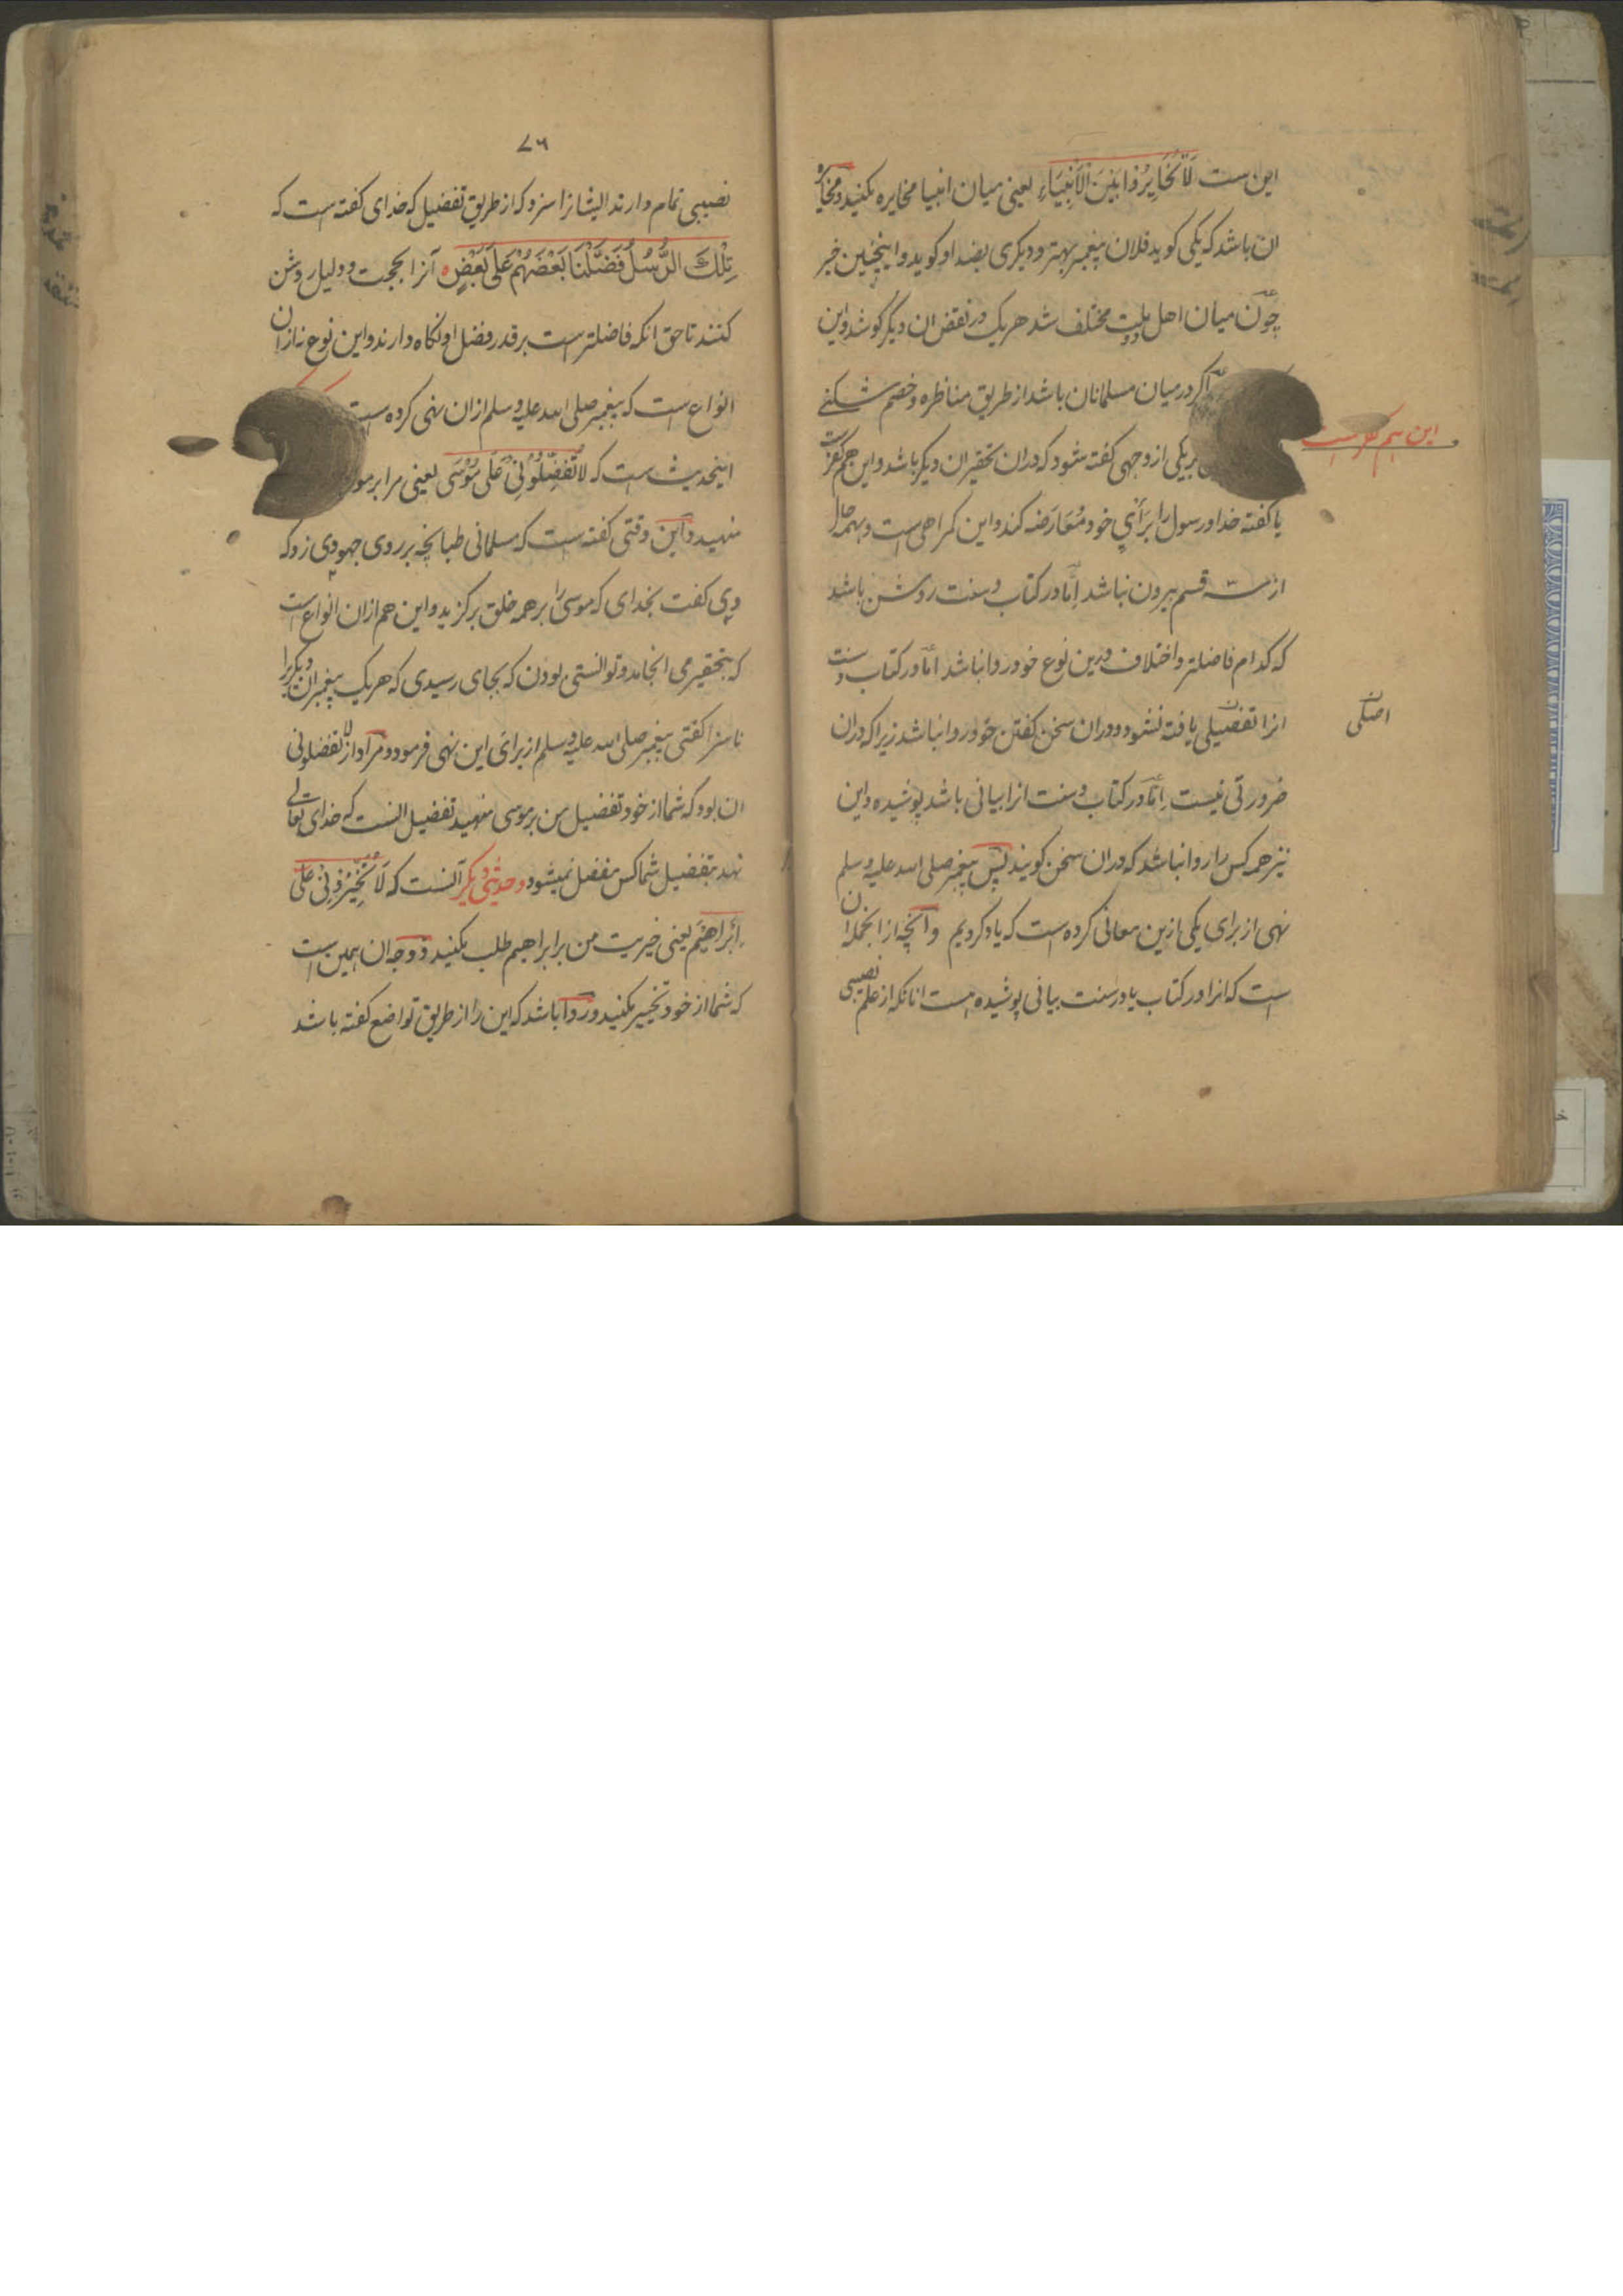 این است لَا تُخَایِرُوا بَیْنَ الْاَنْبِیَاءِ یعنی میان انبیا مخایره مکنید و مخایره
ان باشد که یکی کوید فلان پیغمبر بهتر و دیکری بضد او کوید و اینچنین خبر
چون میان اهل دو ملت مختلف شد هر یک در نقض ان دیگر کوشد و این
اکر در میان مسلمانان باشد از طریق مناظره و خصم شکنی
بریکی از وجهی کفته شود که دران تحقیر ان دیکر باشد و این هم کفرست
این هم کفر است
یا کفته خدا و رسول را برأی خود مُعَارَضَه کند و این کمراهی است و بهمه حال
از سه قسم بیرون نباشد اِمّا در کتاب و سنت روشن باشد
که کدام فاضلتر و اختلاف درین نوع خود روا نباشد امّا در کتاب و سنت
انرا تفضیلی یافته نشود و دران سخن کفتن خود روا نباشد زیرا که دران
اصلی
ضرورتی نیست اِمّا در کتاب و سنت انرا بیانی باشد پوشیده و این
نیز همه کس را روا نباشد که دران سخن کویند پس پیغمبر صلی الله علیه و سلم
نهی از برای یکی ازین معانی کرده است که یاد کردیم و آنچه از انجمله ان
است که انرا در کتاب یا در سنت بیانی پوشیده است انانکه از علم نصیبی
۷۶
نصیبی تمام دارند ایشانرا سزد که از طریق تفضیل که خدای کفته است که
تِلْكَ الرُّسُلُ فَضَّلْنَا بَعْضَهُمْ عَلَى بَعْضٍ آنرا بحجت و دلیل روشن
کنند تا حق انکه فاضلتر است بر قدر فضل او نکاه دارند و این نوع نه ازان
انواع است که پیغمبر صلی الله علیه و سلم ازان نهی کرده است
اینحدیث است که لَا تُفَضِّلُوْنِی عَلَى مُوْسَى یعنی مرا بر
منهید و این وقتی کفته است که مسلمانی طبانچه بر روی جهودی زد که
وی کفت بخدای که موسی را بر همه خلق برکزید و این هم ازان انواع است
که بتحقیر می انجامد و توانستی بودن که بجای رسیدی که هریک پیغمبران دیکر را
ناسزا کفتی پیغمبر صلی الله علیه و سلم از برای این نهی فرمود و مراد از لا تفضلونی
ان بود که شما از خود تفضیل من بر موسی منهید تفضیل انست که خدای تعالی
نهد بتفضیل شما کس مفضل نمیشود و حدیثی دیکر آنست که لَا تُخَیِّرُوْنِی عَلَى
اِبْرَاهِیْمَ یعنی خیریت من بر ابراهیم طلب مکنید و وجه ان همین است
که شما از خود تخییر مکنید و روا باشد که این را از طریق تواضع کفته باشد